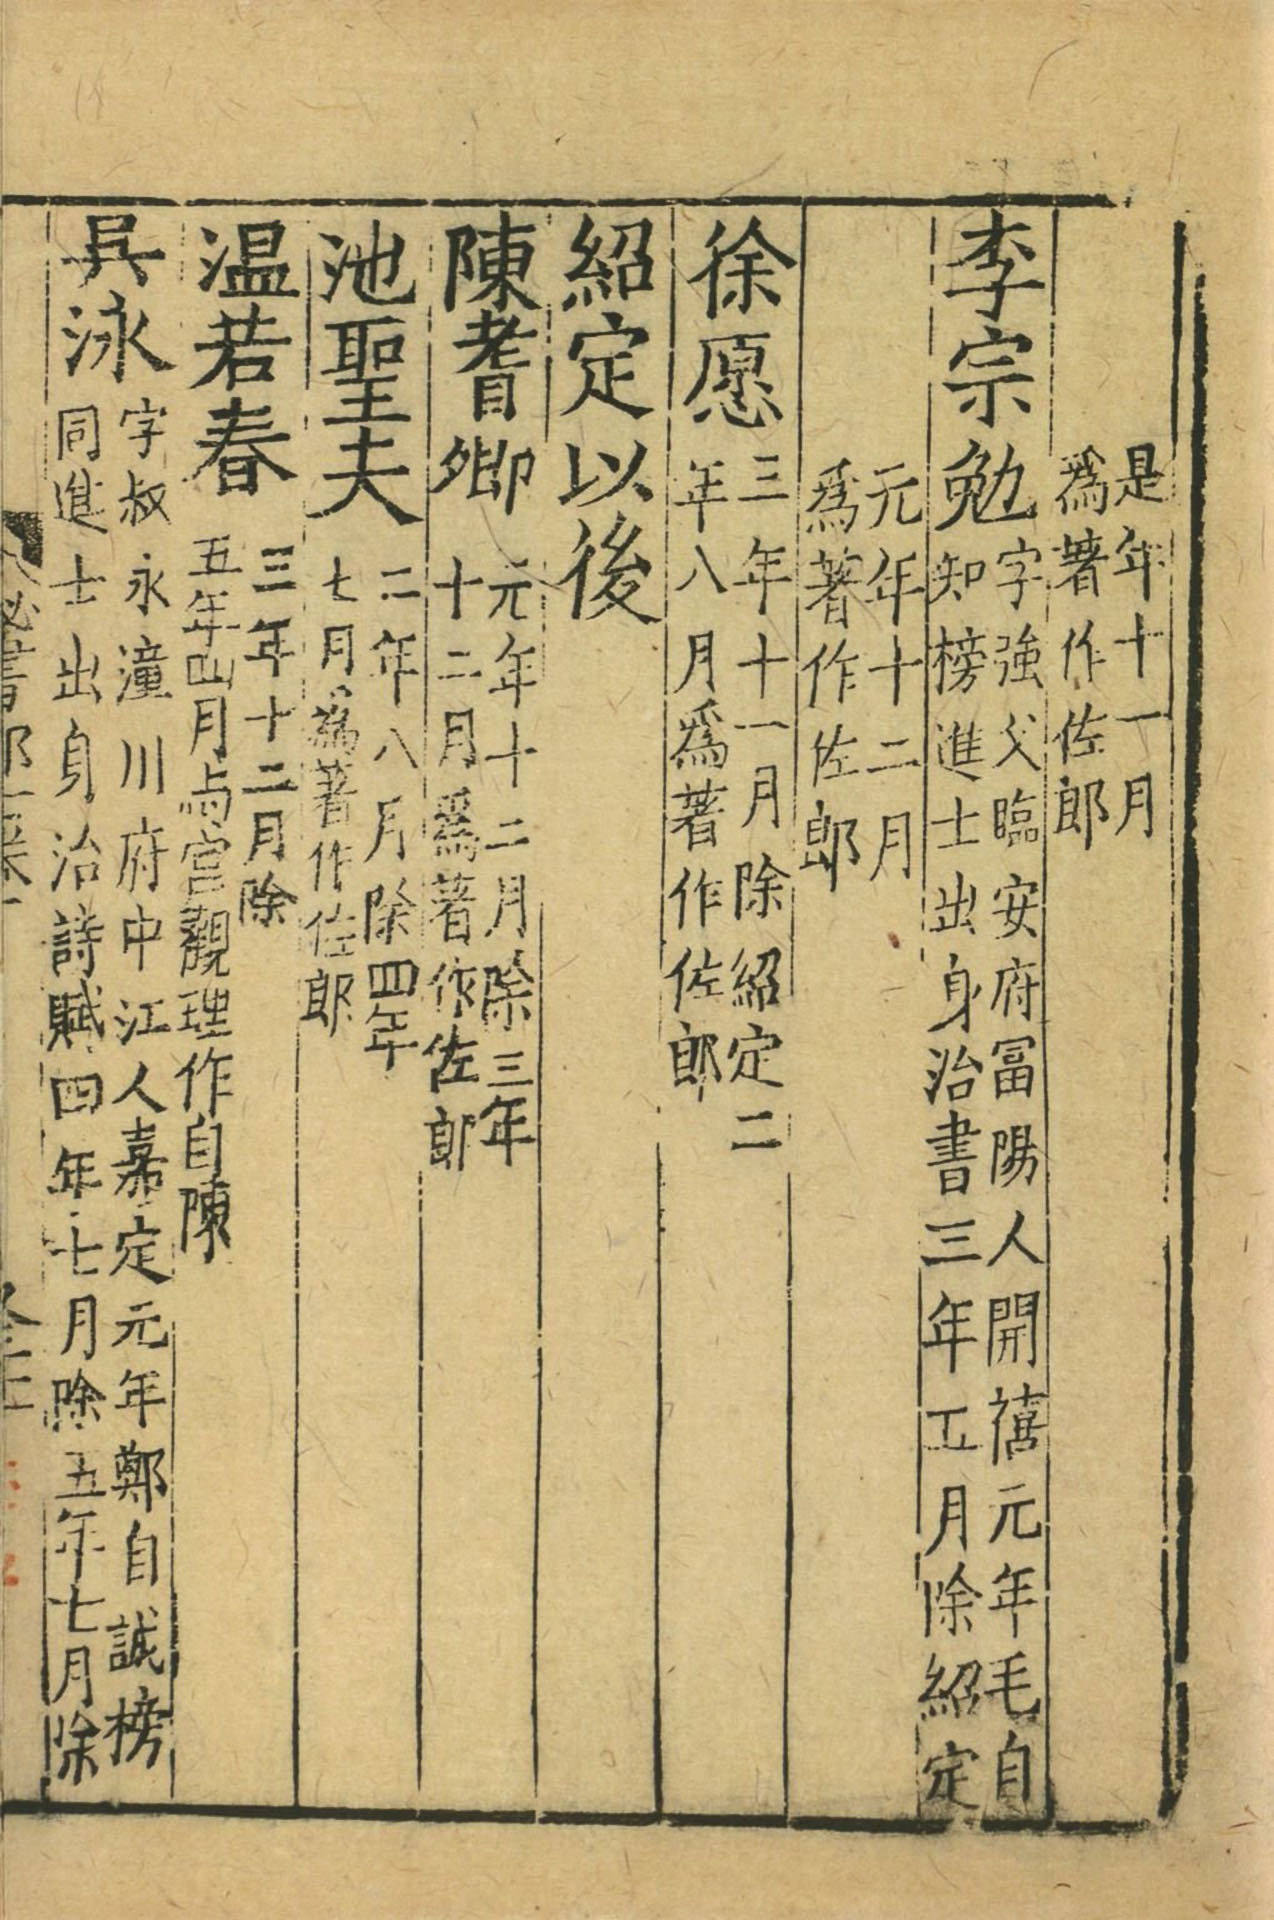 是年十一月
爲著作佐郎
李宗勉
字強父臨安府富陽人開禧元年毛自
知榜進士出身治書三年五月除紹定
元年十二月
爲著作佐郎
徐愿
三年十一月除紹定二
年八月爲著作佐郎
紹定以後
陳耆卿
元年十二月除三年
十二月爲著作佐郎
池聖夫
二年八月除四年
七月爲著作佐郎
温若春
三年十二月除
五年四月与宮觀理作自陳
吳泳
字叔永潼川府中江人嘉定元年鄭自誠榜
同進士出身治詩賦四年七月除五年七月除